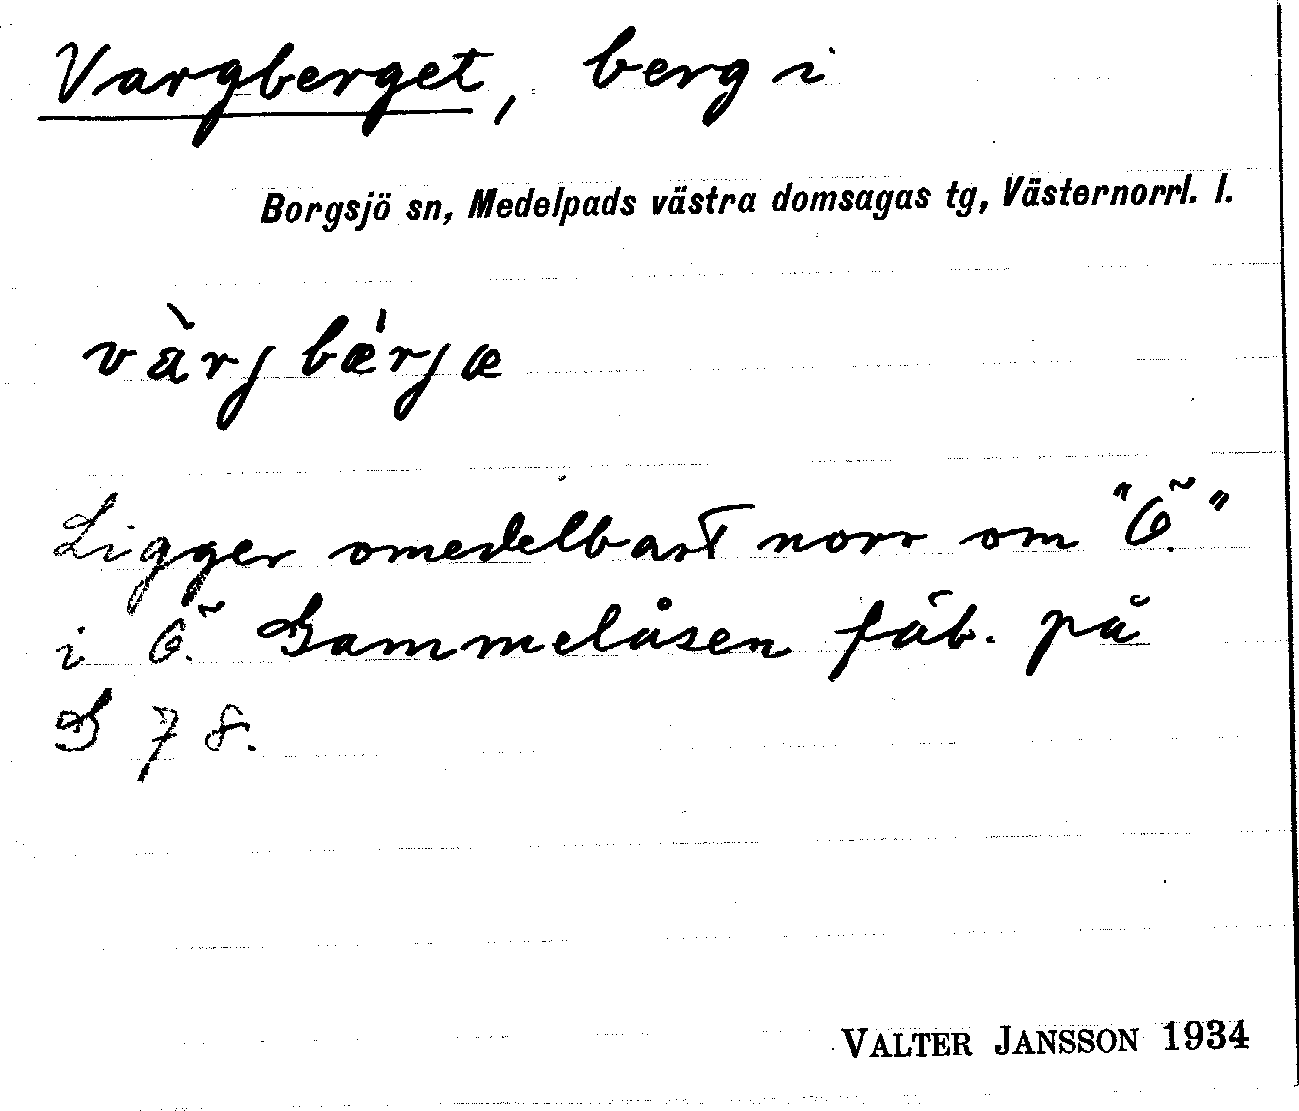 Vargberget, berg i
Borgsjö sn, Medelpads västra domsagas tg, Västernorrl. l.
vàrj bǽrjæ
Ligger omedelbart norr om "Ö."
i Ö. Gammelåsen fäb. på
G 78.
VALTER JANSSON 1934